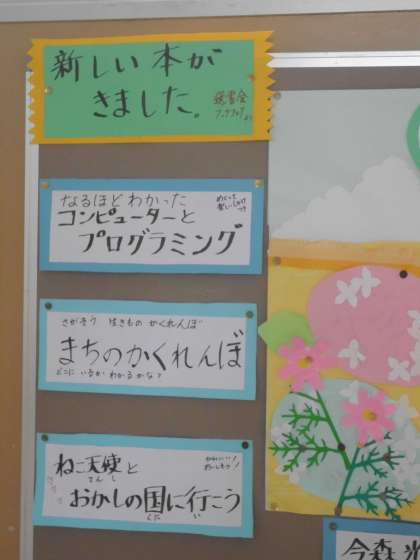 新しい本が
きました。
なるほどわかった
コンピューターと
プログラミング
めくって
楽しいしかけ
つき
さがそう 生きもの かくれんぼ
まちのかくれんぼ
どこに いるか わかるかな?
ねこ天使と
てんし
おかしの国に行こう
くに い
今森光